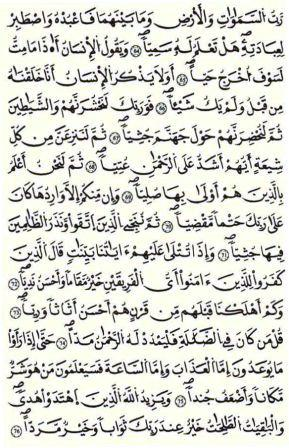 رَبُّ السَّمَٰوَٰتِ وَالْأَرْضِ وَمَا بَيْنَهُمَا فَاعْبُدْهُ وَاصْطَبِرْ
لِعِبَٰدَتِهِ هَلْ تَعْلَمُ لَهُ سَمِيًّا ٦٥ وَيَقُولُ الْإِنسَٰنُ أَ۟ذَا مَا مِتُّ
لَسَوْفَ أُخْرَجُ حَيًّا ٦٦ أَوَلَا يَذْكُرُ الْإِنسَٰنُ أَنَّا خَلَقْنَٰهُ
مِن قَبْلُ وَلَمْ يَكُ شَيْـًٔا ٦٧ فَوَرَبِّكَ لَنَحْشُرَنَّهُمْ وَالشَّيَٰطِينَ
ثُمَّ لَنُحْضِرَنَّهُمْ حَوْلَ جَهَنَّمَ جُثِيًّا ٦٨ ثُمَّ لَنَنزِعَنَّ مِن كُلِّ
شِيعَةٍ أَيُّهُمْ أَشَدُّ عَلَى الرَّحْمَٰنِ عُتِيًّا ٦٩ ثُمَّ لَنَحْنُ أَعْلَمُ
بِالَّذِينَ هُمْ أَوْلَىٰ بِهَا صُلِيًّا ٧٠ وَإِن مِّنكُمْ إِلَّا وَارِدُهَا كَانَ
عَلَىٰ رَبِّكَ حَتْمًا مَّقْضِيًّا ٧١ ثُمَّ نُنَجِّي الَّذِينَ اتَّقَوا وَّنَذَرُ الظَّٰلِمِينَ
فِيهَا جُثِيًّا ٧٢ وَإِذَا تُتْلَىٰ عَلَيْهِمْ ءَايَٰتُنَا بَيِّنَٰتٍ قَالَ الَّذِينَ
كَفَرُوا لِلَّذِينَ ءَامَنُوا أَيُّ الْفَرِيقَيْنِ خَيْرٌ مَّقَامًا وَأَحْسَنُ نَدِيًّا ٧٣
وَكَمْ أَهْلَكْنَا قَبْلَهُم مِّن قَرْنٍ هُمْ أَحْسَنُ أَثَٰثًا وَرِيًّا ٧٤
قُلْ مَن كَانَ فِي الضَّلَٰلَةِ فَلْيَمْدُدْ لَهُ الرَّحْمَٰنُ مَدًّا حَتَّىٰ إِذَا رَأَوْا
مَا يُوعَدُونَ إِمَّا الْعَذَابَ وَإِمَّا السَّاعَةَ فَسَيَعْلَمُونَ مَنْ هُوَ شَرٌّ
مَّكَانًا وَأَضْعَفُ جُندًا ٧٥ وَيَزِيدُ اللَّهُ الَّذِينَ اهْتَدَوْا هُدًى
وَالْبَٰقِيَٰتُ الصَّٰلِحَٰتُ خَيْرٌ عِندَ رَبِّكَ ثَوَابًا وَخَيْرٌ مَّرَدًّا ٧٦